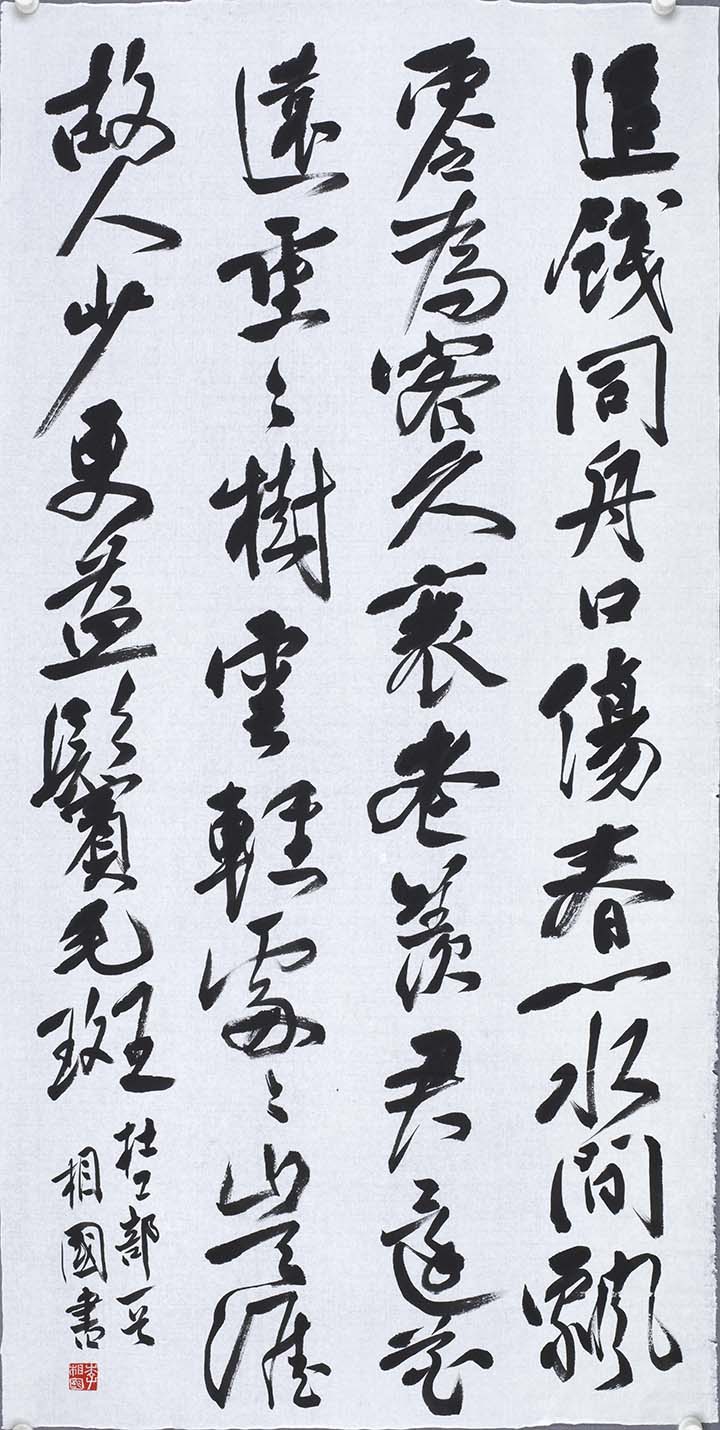 追餞同舟日傷春一水間飄
零為客久衰老羨君還花
遠重々樹雲輕處々山天涯
故人少更益鬢毛斑
杜工部一首
相國書
李相國